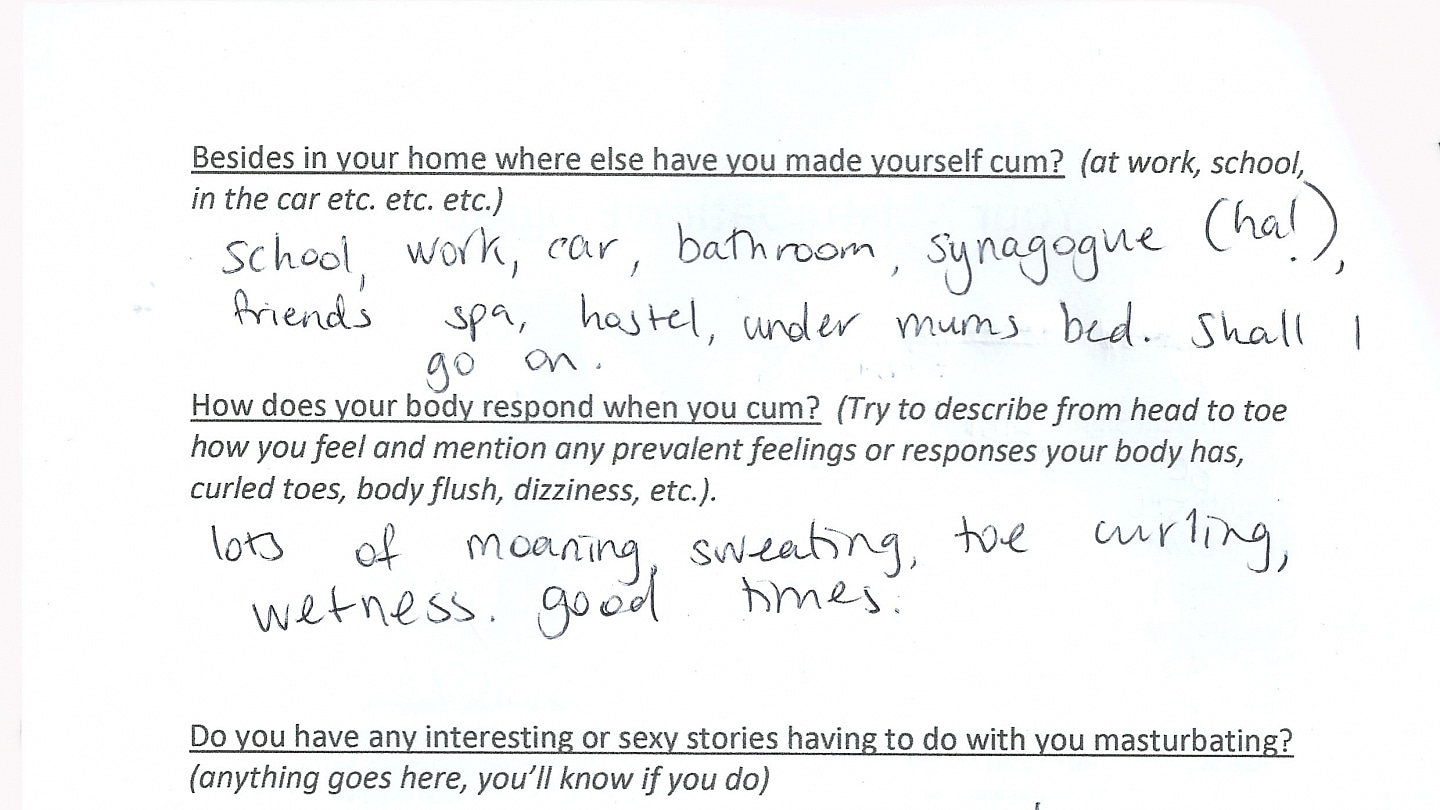 Besides in your home where else have you made yourself cum? (at work, school,
in the car etc. etc. etc.)
School, work, car, bathroom, synagogue (ha!),
friends spa, hostel, under mums bed. Shall I
go on.
How does your body respond when you cum? (Try to describe from head to toe
how you feel and mention any prevalent feelings or responses your body has,
curled toes, body flush, dizziness, etc.).
lots of moaning, sweating, toe curling,
wetness. good times.
Do you have any interesting or sexy stories having to do with you masturbating?
(anything goes here, you'll know if you do)